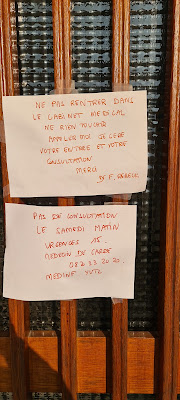 NE PAS RENTRER DANS
LE CABINET MEDICAL
NE RIEN TOUCHER
APPELER MOI JE GERE
VOTRE ENTREE ET VOTRE
CONSULTATION
MERCI
DR F.
PAS DE CONSULTATION
LE SAMEDI MATIN
URGENCES 15.
MEDECIN DE GARDE
MEDINE